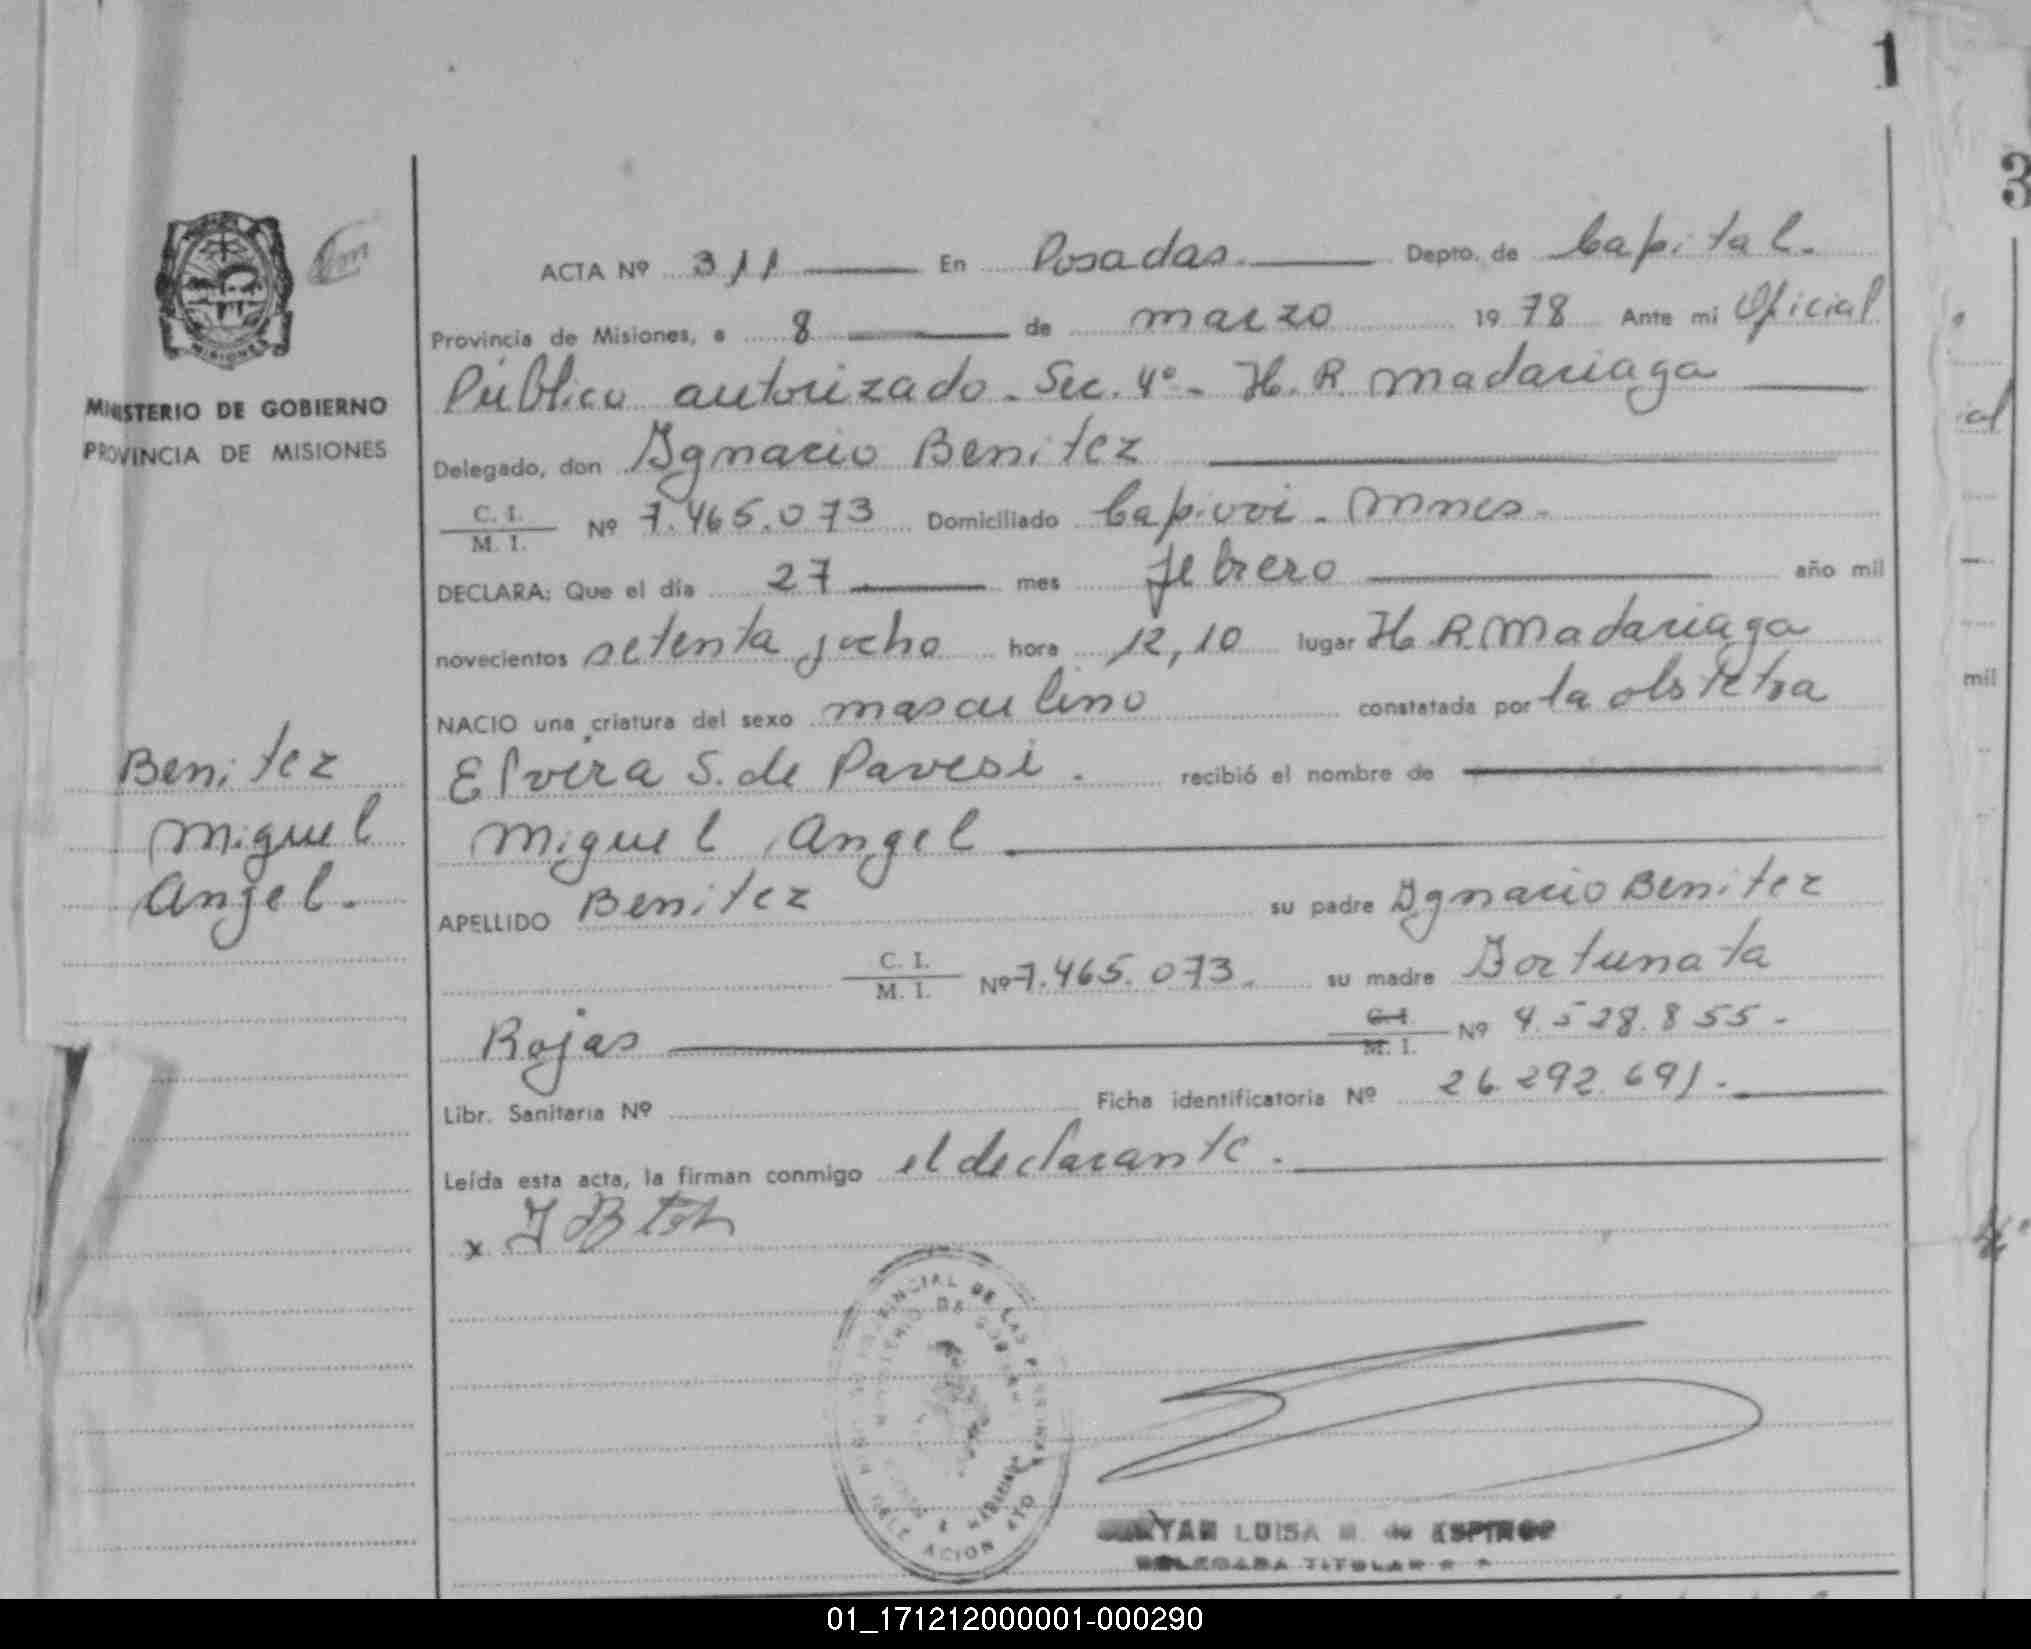 1
3
MISIONES
MINISTERIO DE GOBIERNO
PROVINCIA DE MISIONES
Benitez
Miguel
Angel.
ACTA Nº 311 En Posadas. Depto. de Capital.
Provincia de Misiones, a 8 de marzo 1978 Ante mi Oficial
Público autorizado. Sec. 4º - H. R. Madariaga
Delegado, don Ignacio Benitez
C. I. / M. I. Nº 7.465.073 Domiciliado Capiovi - Mnes.
DECLARA: Que el día 27 mes febrero año mil
novecientos setenta y ocho hora 12,10 lugar H. R. Madariaga
NACIO una criatura del sexo masculino constatada por la obstetra
Elvira S. de Pavesi. recibió el nombre de
Miguel Angel
APELLIDO Benitez su padre Ignacio Benitez
C. I. / M. I. Nº 7.465.073. su madre Fortunata
Rojas C. I. / M. I. Nº 4.528.855.
Libr. Sanitaria Nº Ficha identificatoria Nº 26.292.691.
Leída esta acta, la firman conmigo el declarante.
x
PROVINCIAL DE LAS PERSONAS
MINISTERIO DE
DELEGACION
LUISA M. de ESPINOZA
DELEGADA TITULAR
ial
mil
4º
01_171212000001-000290